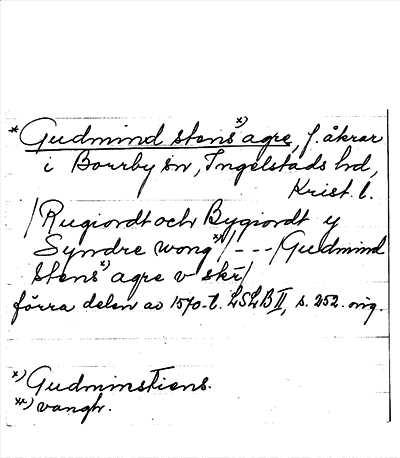 * Gudmind stens *) agre, f. åkrar
i Borrby sn, Ingelstads hd,
Krist. l.
/Rugiordt och Bygiordt y
Syndre wong **)/---/Gudmind
stens *) agre v skr/
förra delen av 1570-t. LSLB II, s. 252. orig.
*) Gudminstiens.
**) vangh.